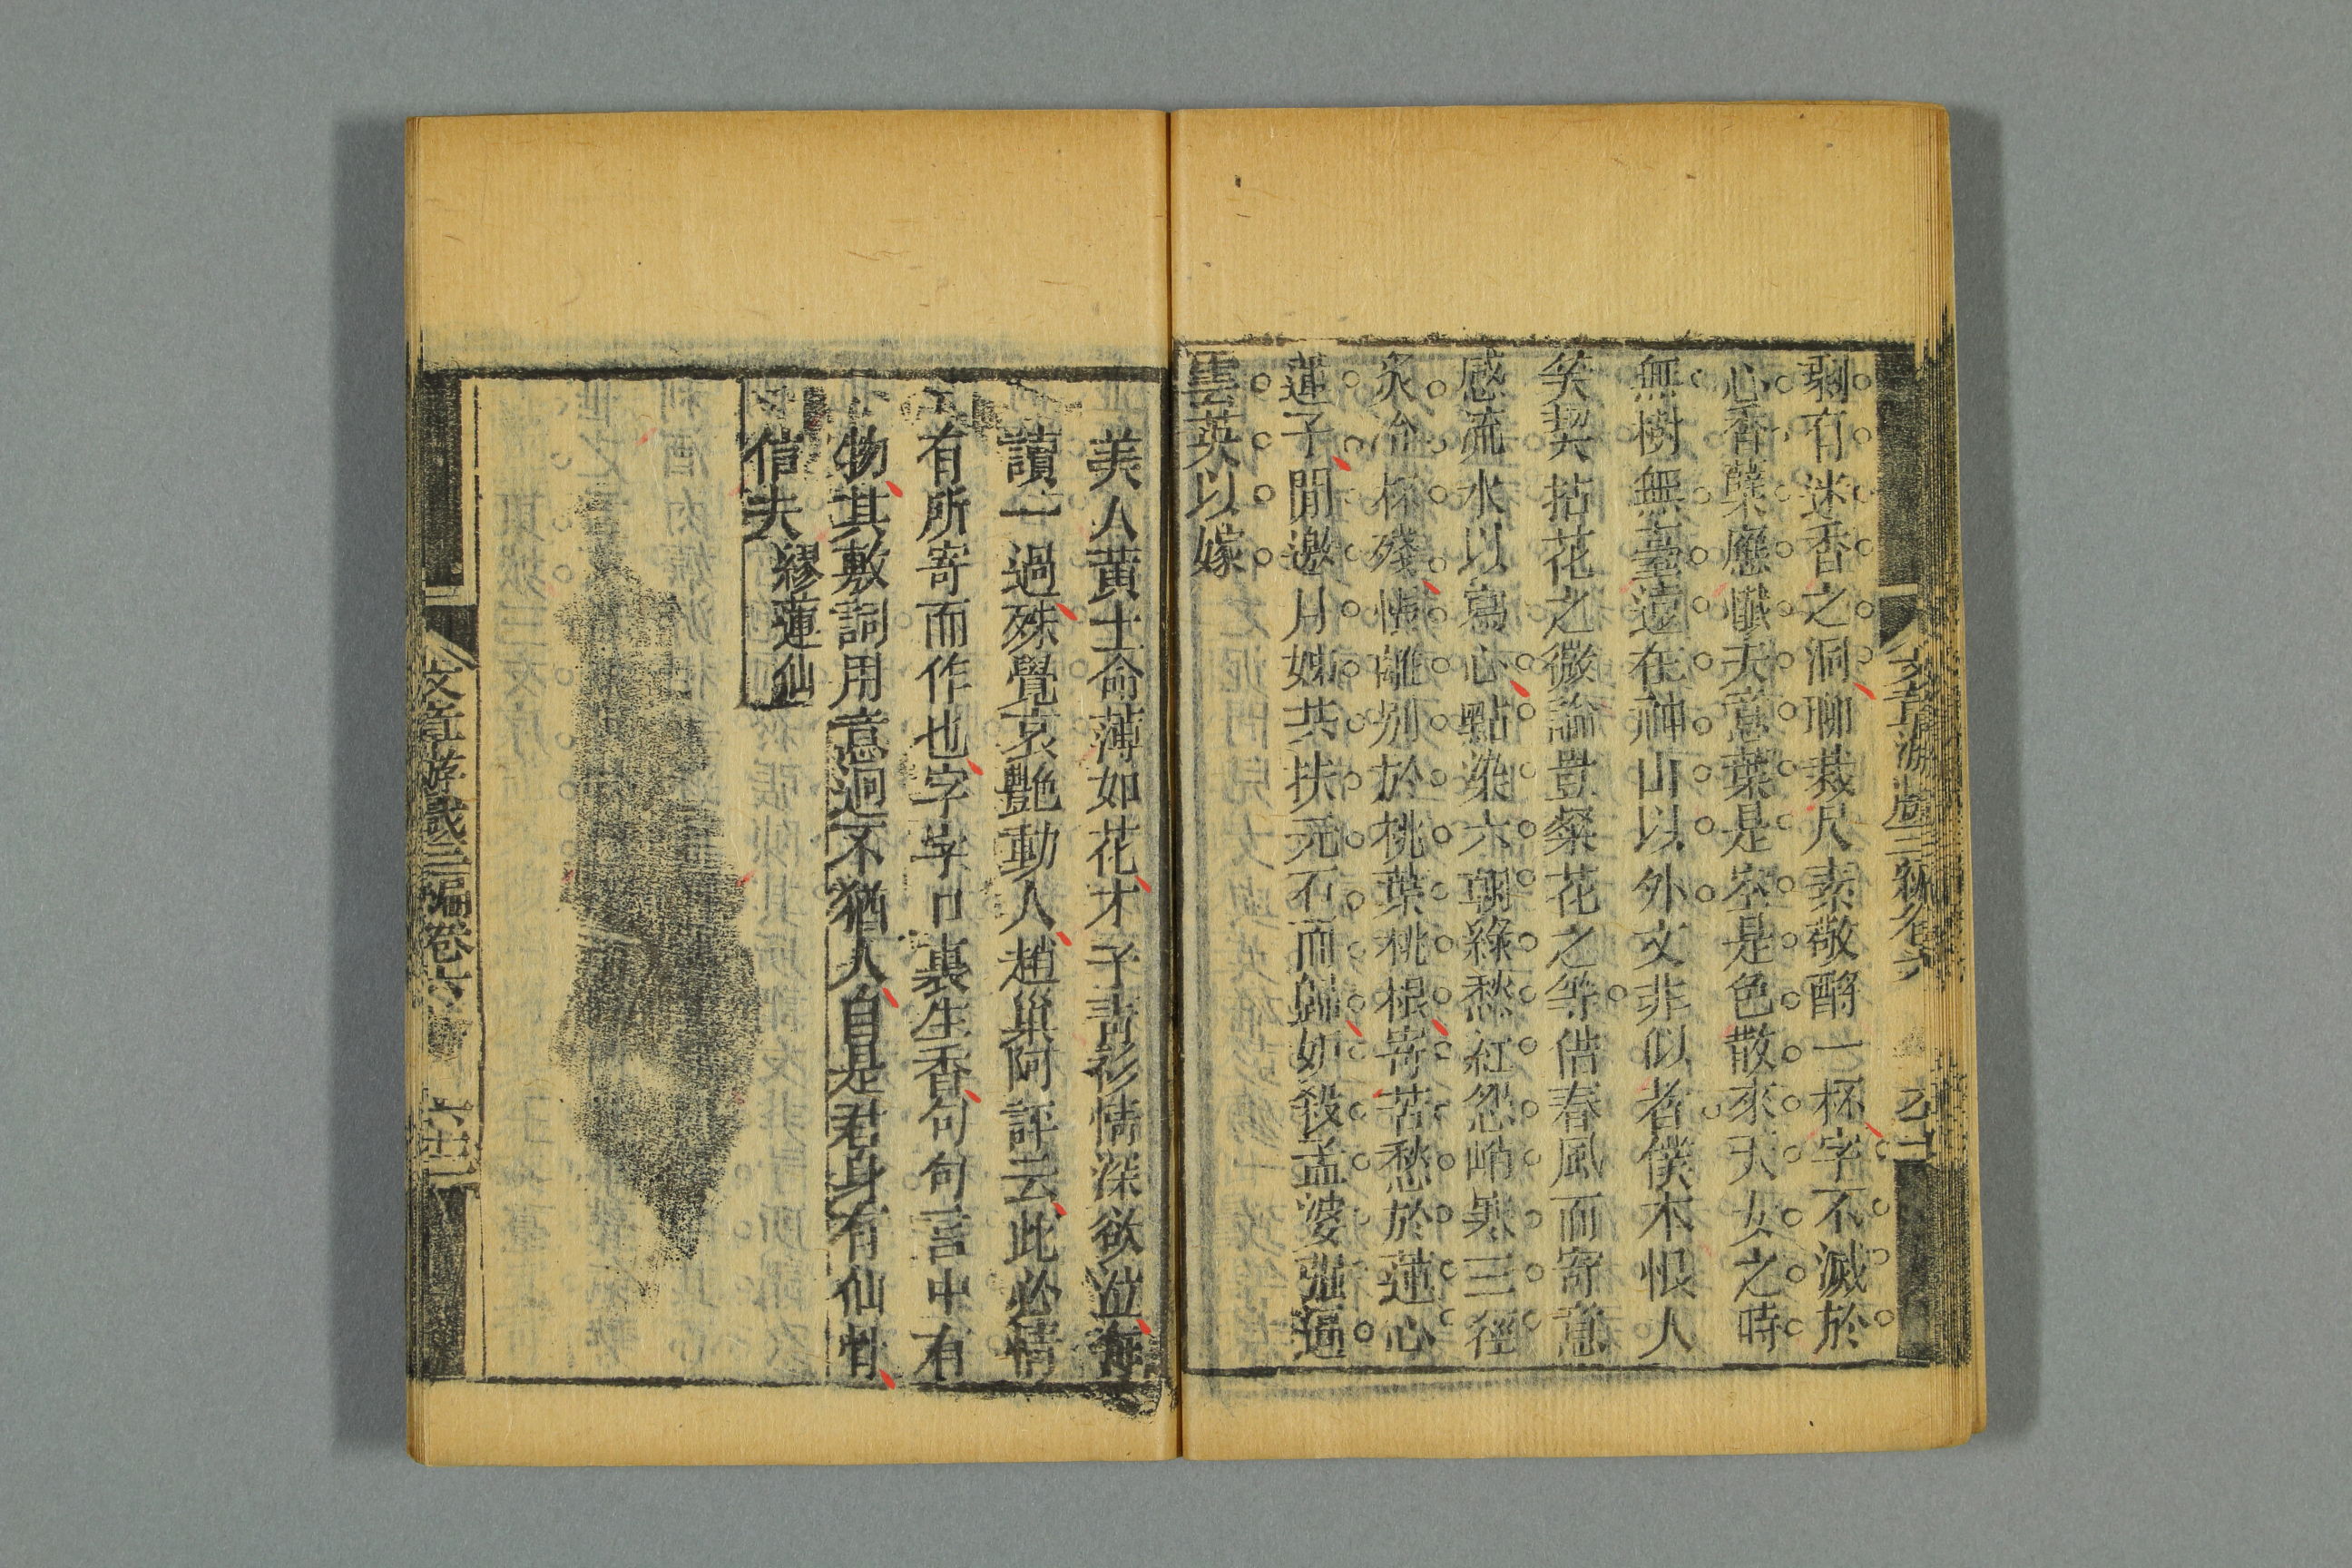 剩有迷香之洞聊裁尺素敬酧一杯字不滅於
心香蘖應懺夫意葉是空是色散來天女之時
無樹無臺遠在神山以外文非似者僕本恨人
矣契拈花之微論豈粲花之等借春風而寄意
感流水以寫心點染六朝綠愁紅怨峭寒三徑
炙冷杯殘悵離別於桃葉桃根寄苦愁於蓮心
蓮子閒邀月姊共扶元石而歸妬殺孟婆强逼
雲英以嫁
文章游戲三編卷六
美人黃土命薄如花才子青衫情深欲泣每
讀一過殊覺哀艷動人趙巢阿評云此必情
有所寄而作也字字口裏生香句句言中有
物其敷詞用意迥不猶人自是君身有仙骨
信夫 繆蓮仙
文章游戲三編卷六 六十二